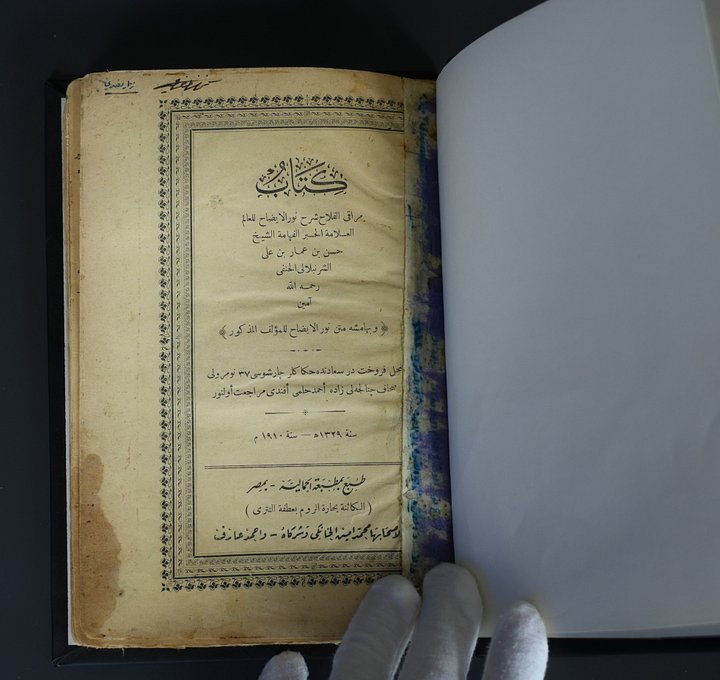 كتاب
مراقى الفلاح شرح نور الايضاح للعالم
العلامة الحبر الفهامة الشيخ
حسن بن عمار بن على
الشرنبلالى الحنفى
رحمه الله
آمين
﴿ وبهامشه متن نور الايضاح للمؤلف المذكور ﴾
محل فروخت در سعادتده حكاكلر چارشوسى ٣٧ نومرولى
صحاف چتالجه لى زاده أحمد حلمى أفندى مراجعت أولنور
سنة ١٣٢٩ه — سنة ١٩١٠ م
طبع بمطبعة الجمالية - بمصر
( الكائنة بحارة الروم بعطفة التترى )
لاصحابها محمد امين الخانجى وشركاه - واحمد عارف